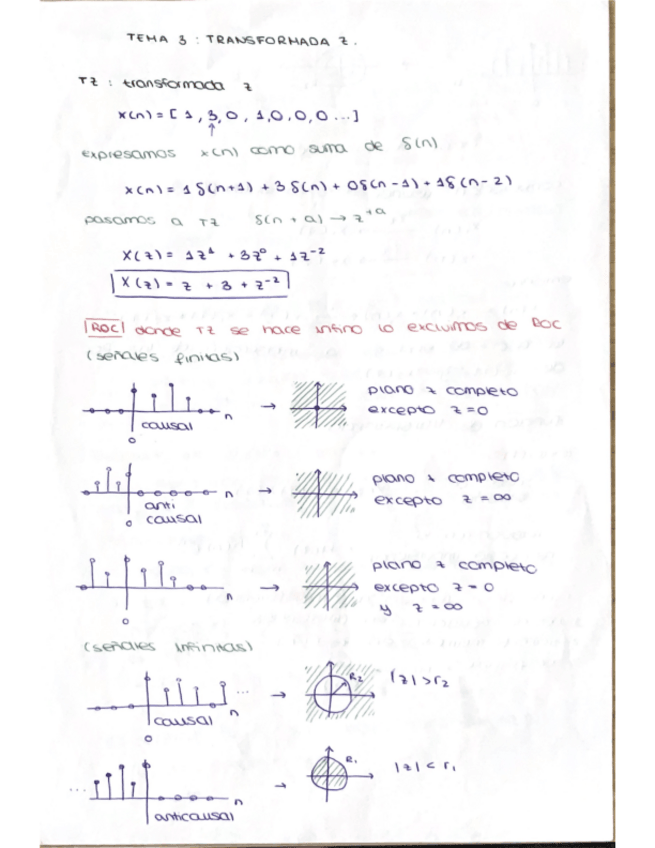 TEMA 3 : TRANSFORMADA Z.
TZ : transformada z
x(n) = [ 1 , 3, 0 , 1, 0, 0, 0 ...]
↑
expresamos x(n) como suma de δ(n)
x(n) = 1 δ(n+1) + 3 δ(n) + 0δ(n-1) + 1δ(n-2)
pasamos a TZ δ(n + a) → z⁺ᵃ
X(z) = 1z¹ + 3z⁰ + 1z⁻²
X(z) = z + 3 + z⁻²
ROC donde TZ se hace infino lo excluimos de ROC
(señales finitas)
causal n → plano z completo
0 excepto z=0
anti n → plano z completo
0 causal excepto z = ∞
n → plano z completo
0 excepto z = 0
y z = ∞
(señales infinitas)
... causal n → R₂ |z| > r₂
0
... anticausal n → R₁ |z| < r₁